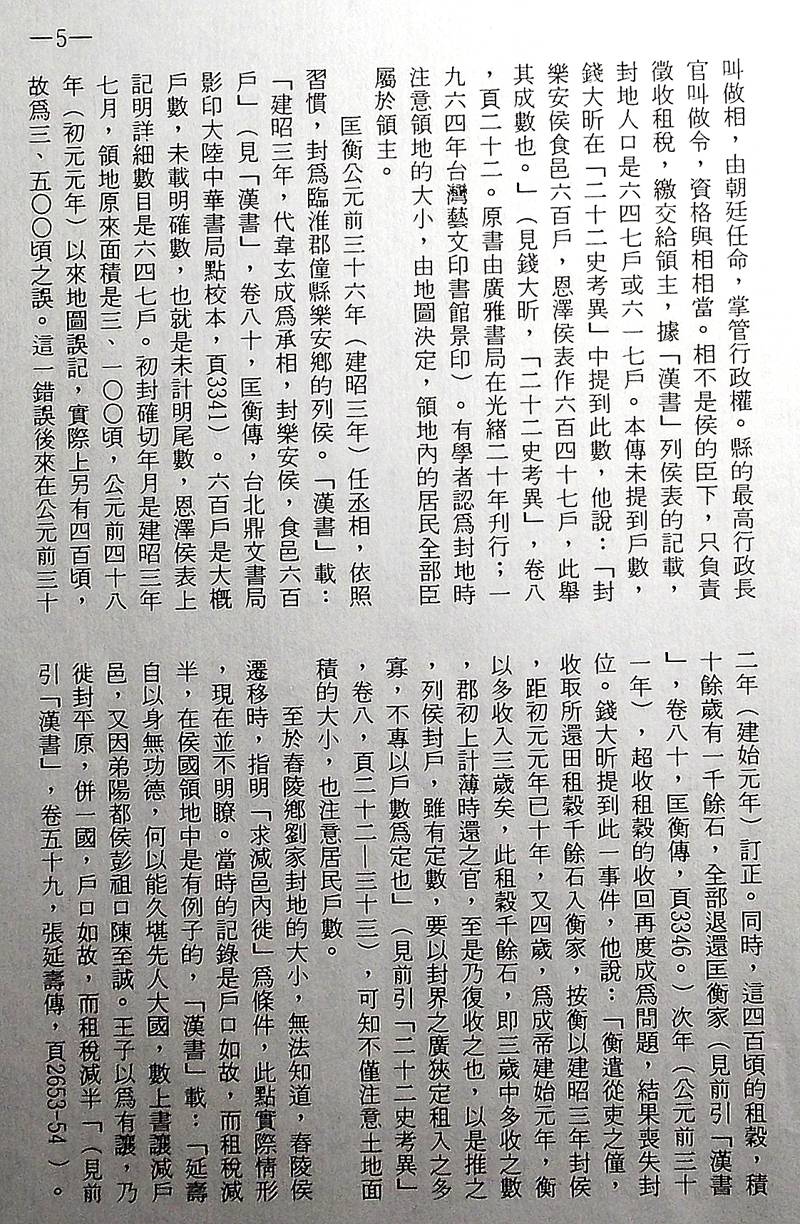 叫做相，由朝廷任命，掌管行政權。縣的最高行政長
官叫做令，資格與相相當。相不是侯的臣下，只負責
徵收租稅，繳交給領主，據「漢書」列侯表的記載，
封地人口是六四七戶或六一七戶。本傳未提到戶數，
錢大昕在「二十二史考異」中提到此數，他說：「封
樂安侯食邑六百戶，恩澤侯表作六百四十七戶，此舉
其成數也。」（見錢大昕，「二十二史考異」，卷八
，頁二十二。原書由廣雅書局在光緒二十年刊行；一
九六四年台灣藝文印書館景印）。有學者認爲封地時
注意領地的大小，由地圖決定，領地內的居民全部臣
屬於領主。
匡衡公元前三十六年（建昭三年）任丞相，依照
習慣，封爲臨淮郡僮縣樂安鄉的列侯。「漢書」載：
「建昭三年，代韋玄成爲承相，封樂安侯，食邑六百
戶」（見「漢書」，卷八十，匡衡傳，台北鼎文書局
影印大陸中華書局點校本，頁3341）。六百戶是大概
戶數，未載明確數，也就是未計明尾數，恩澤侯表上
記明詳細數目是六四七戶。初封確切年月是建昭三年
七月，領地原來面積是三、一〇〇頃，公元前四十八
年（初元元年）以來地圖誤記，實際上另有四百頃，
故爲三、五〇〇頃之誤。這一錯誤後來在公元前三十
二年（建始元年）訂正。同時，這四百頃的租穀，積
十餘歲有一千餘石，全部退還匡衡家（見前引「漢書
」，卷八十，匡衡傳，頁3346。）次年（公元前三十
一年），超收租穀的收回再度成爲問題，結果喪失封
位。錢大昕提到此一事件，他說：「衡遣從吏之僮，
收取所還田租穀千餘石入衡家，按衡以建昭三年封侯
，距初元元年已十年，又四歲，爲成帝建始元年，衡
以多收入三歲矣，此租穀千餘石，即三歲中多收之數
，郡初上計薄時還之官，至是乃復收之也，以是推之
，列侯封戶，雖有定數，要以封界之廣狹定租入之多
寡，不專以戶數爲定也」（見前引「二十二史考異」
，卷八，頁二十二—三十三），可知不僅注意土地面
積的大小，也注意居民戶數。
至於舂陵鄉劉家封地的大小，無法知道，舂陵侯
遷移時，指明「求減邑內徙」爲條件，此點實際情形
，現在並不明瞭。當時的記錄是戶口如故，而租稅減
半，在侯國領地中是有例子的，「漢書」載：「延壽
自以身無功德，何以能久堪先人大國，數上書讓減戶
邑，又因弟陽都侯彭祖口陳至誠。王子以爲有讓，乃
徙封平原，併一國，戶口如故，而租稅減半「（見前
引「漢書」，卷五十九，張延壽傳，頁2653-54）。
—5—